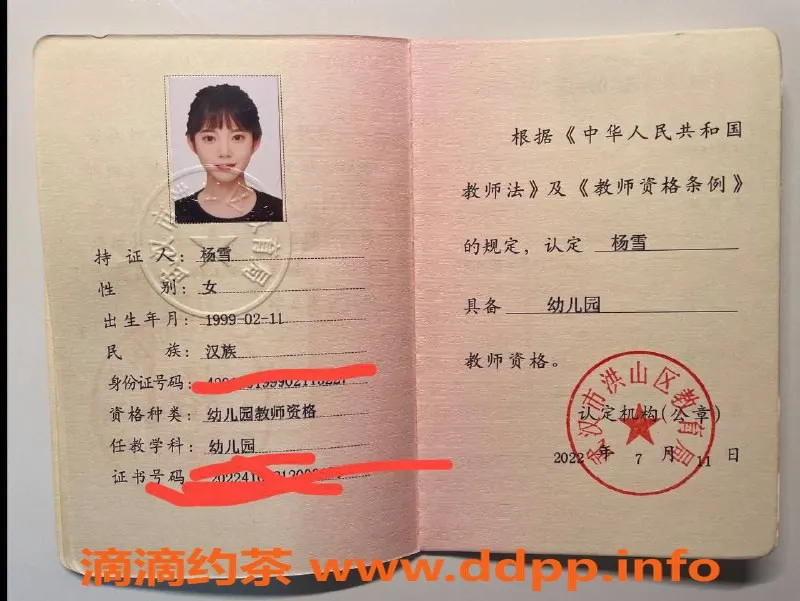 持证人：杨雪
性别：女
出生年月：1999-02-11
民族：汉族
身份证号码：
资格种类：幼儿园教师资格
任教学科：幼儿园
证书号码
根据《中华人民共和国
教师法》及《教师资格条例》
的规定，认定 杨雪
具备 幼儿园
教师资格。
武汉市洪山区教育局
认定机构(公章)
2022 年 7 月 11 日
滴滴约茶 www.ddpp.info